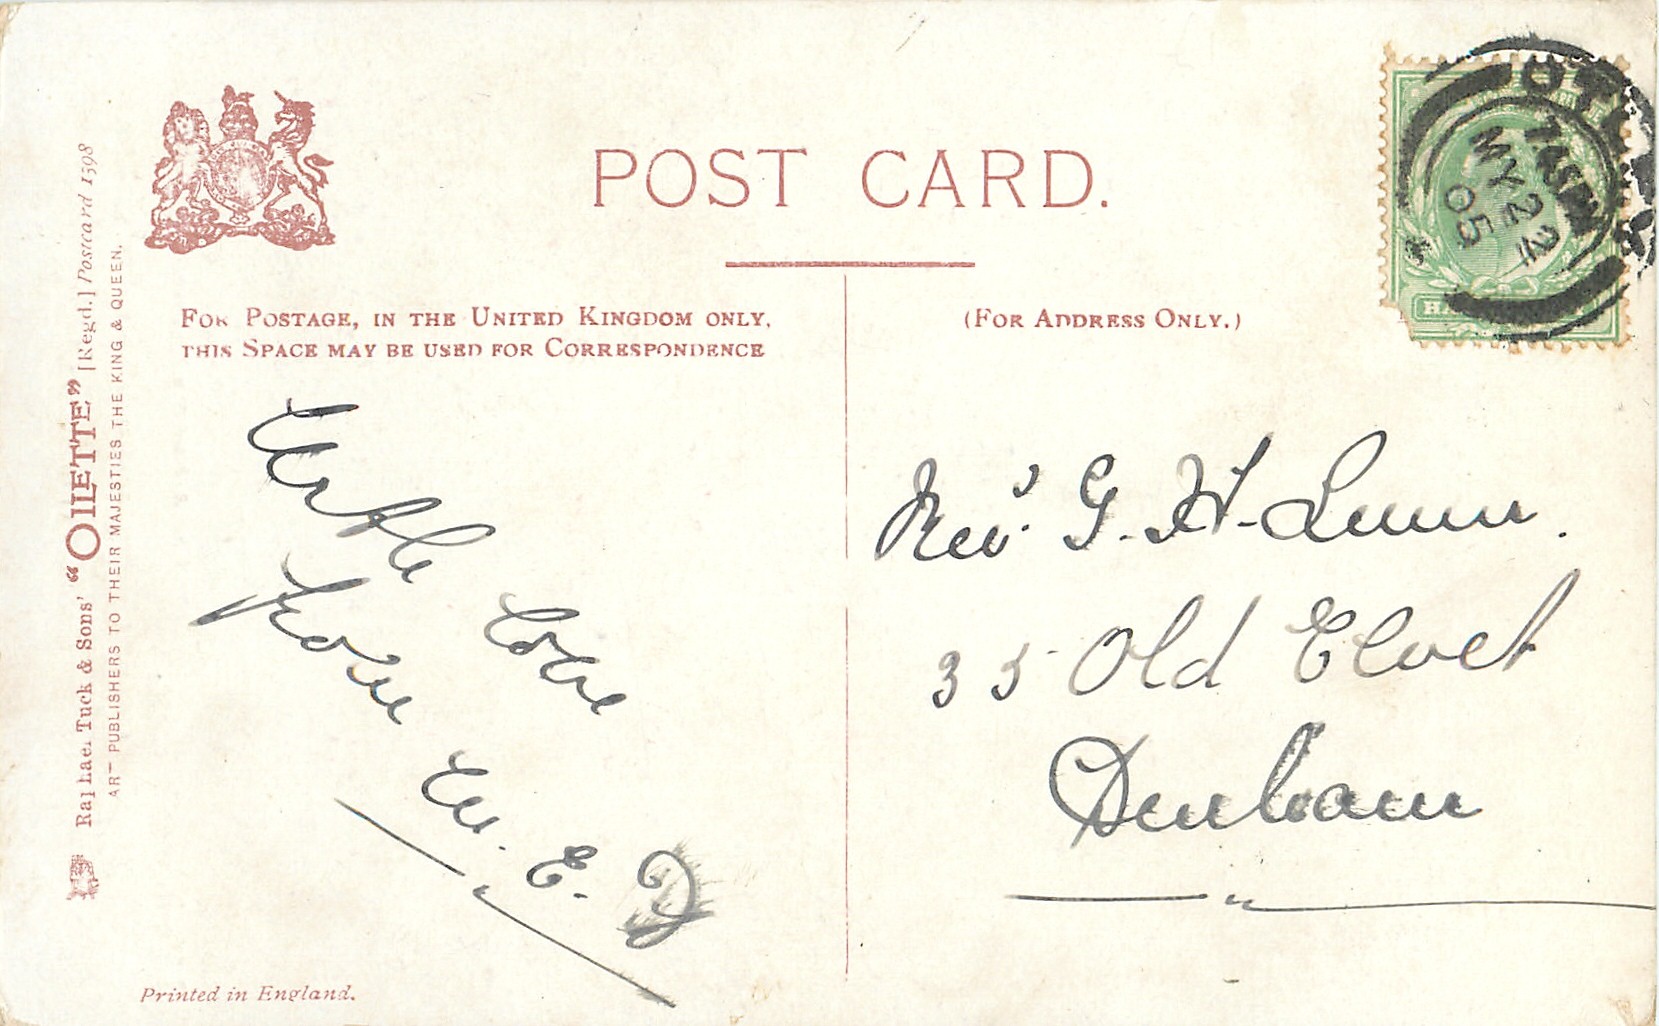 POST CARD.
FOR POSTAGE, IN THE UNITED KINGDOM ONLY,
THIS SPACE MAY BE USED FOR CORRESPONDENCE
(FOR ADDRESS ONLY.)
Raphael Tuck & Sons' "OILETTE" [Regd.] Postcard 1398
ART PUBLISHERS TO THEIR MAJESTIES THE KING & QUEEN.
7.45PM
MY 22
05
With love
from
W. E. D
Rev. G. H. Lunn.
35 Old Elvet
Durham
Printed in England.